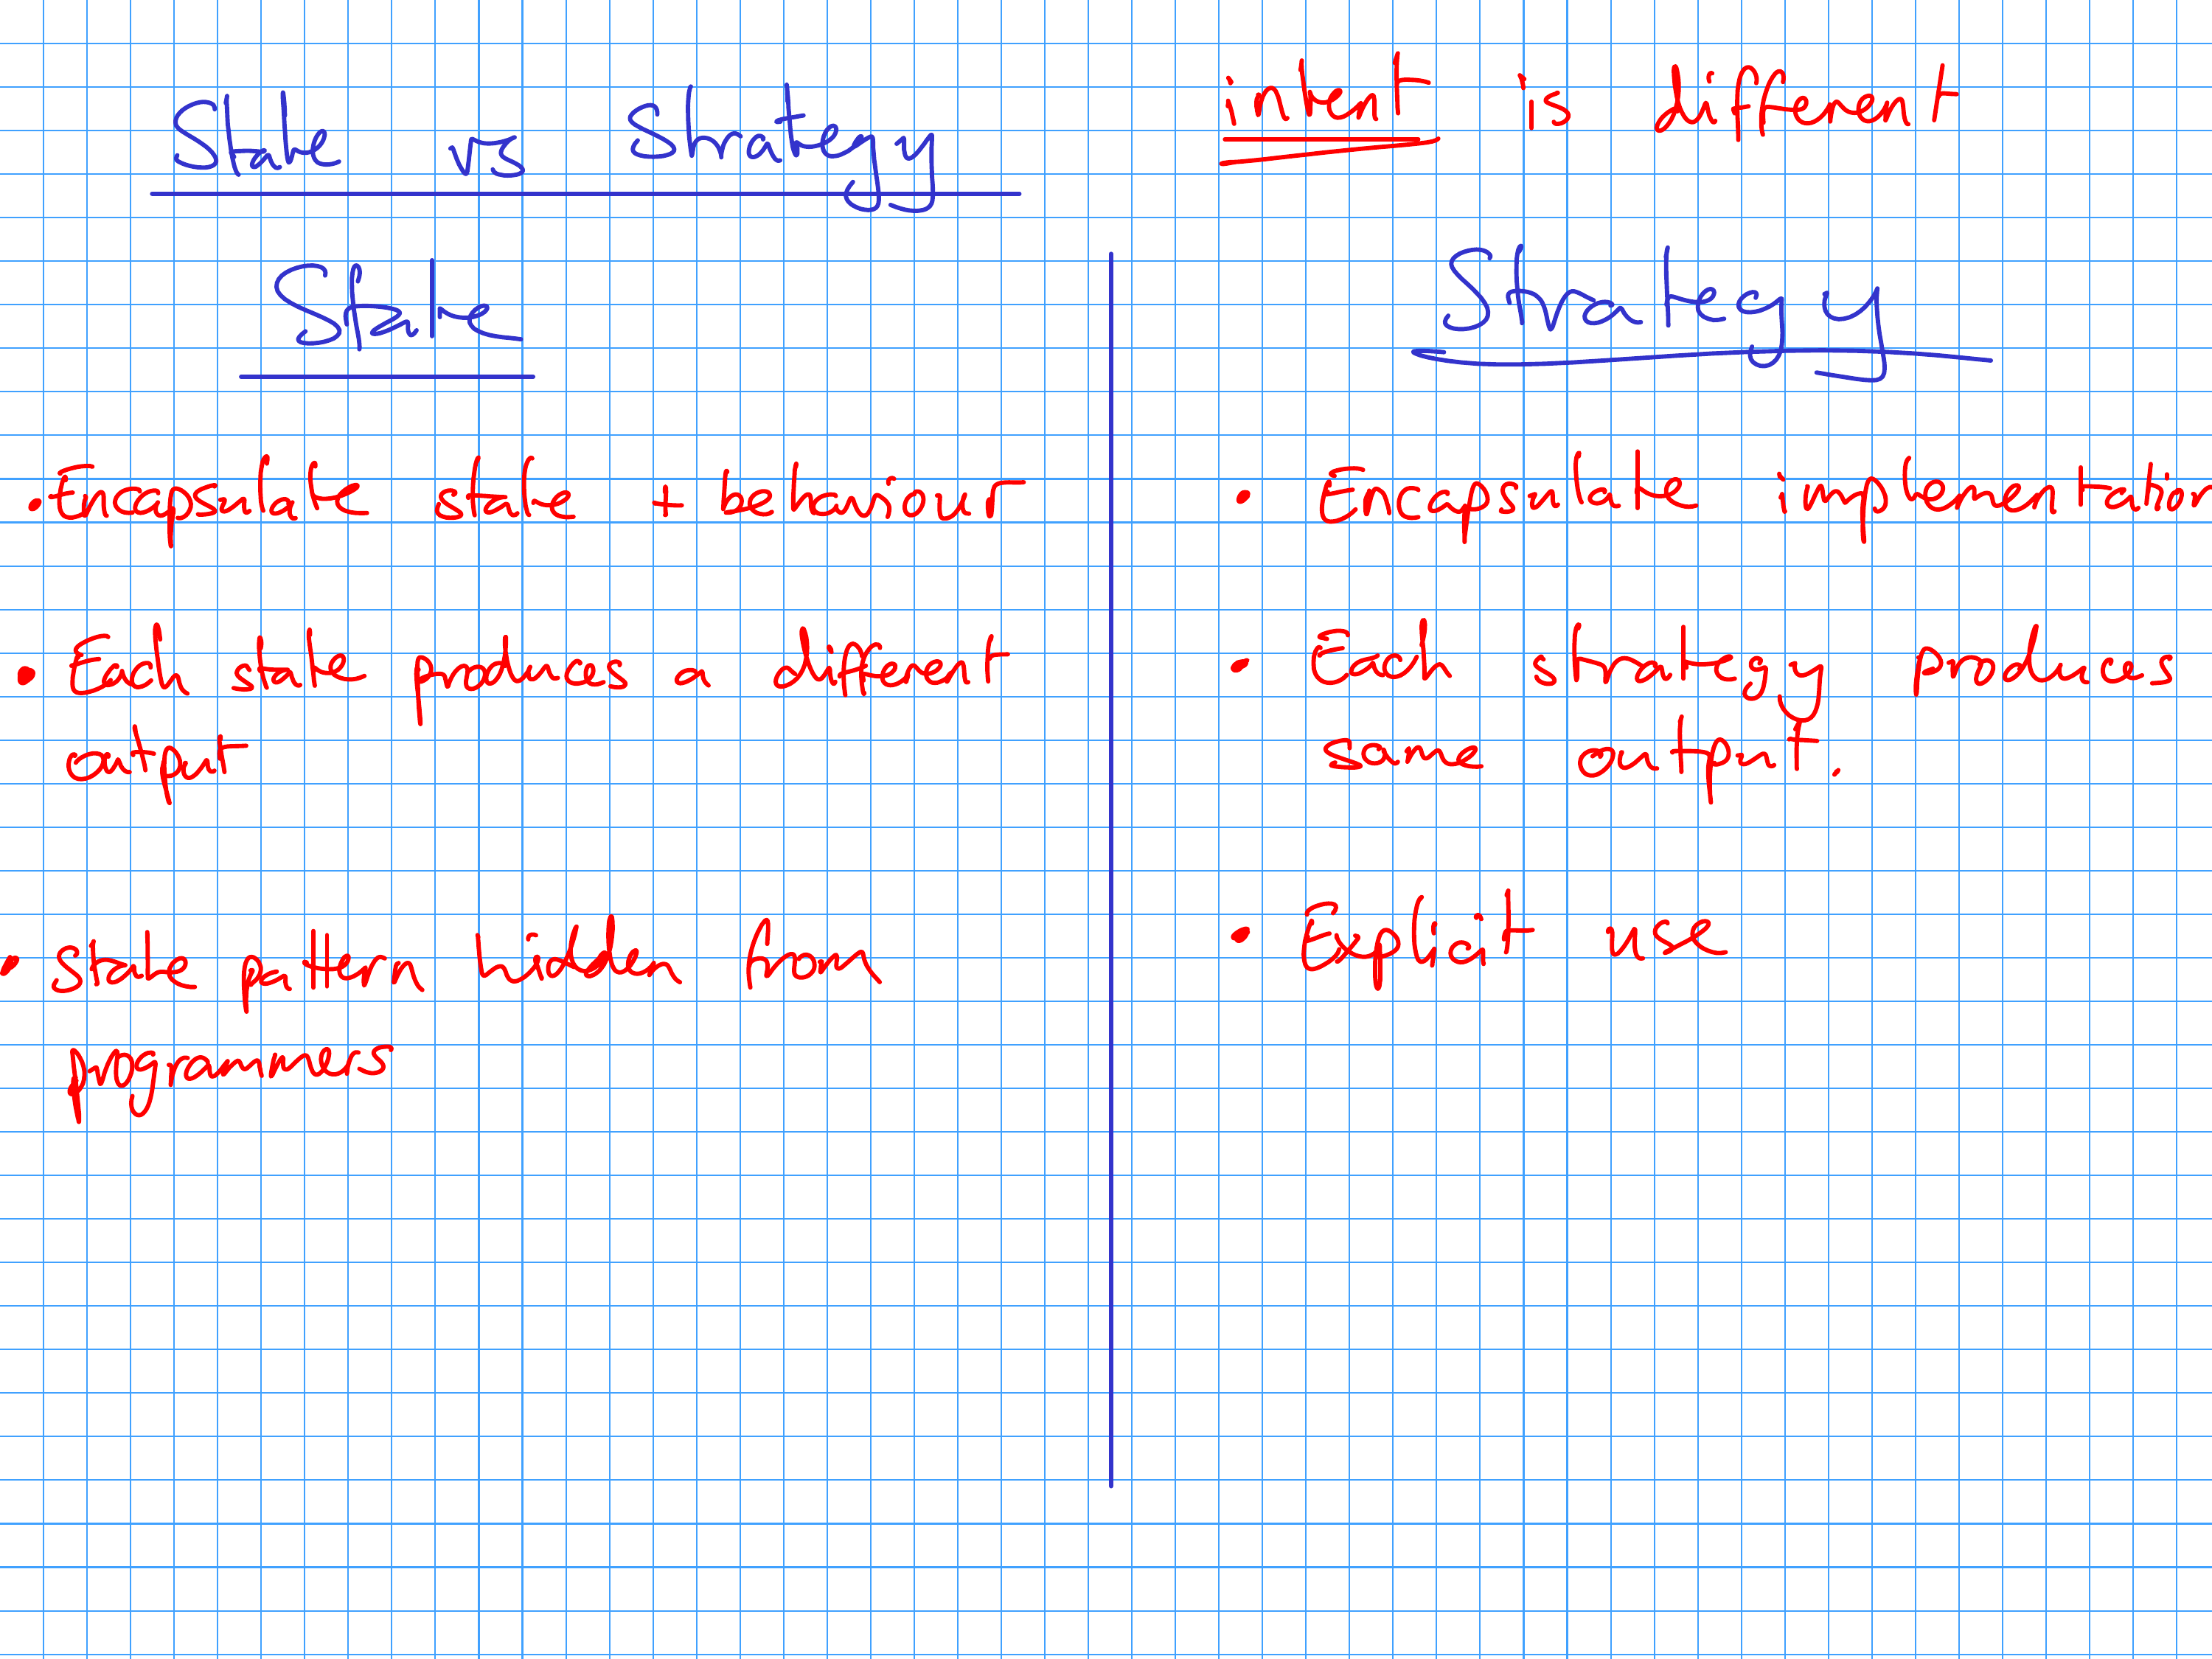 State vs Strategy
intent is different
State
• Encapsulate state + behaviour
• Each state produces a different
output
• State pattern hidden from
programmers
Strategy
• Encapsulate implementation
• Each strategy produces
same output.
• Explicit use